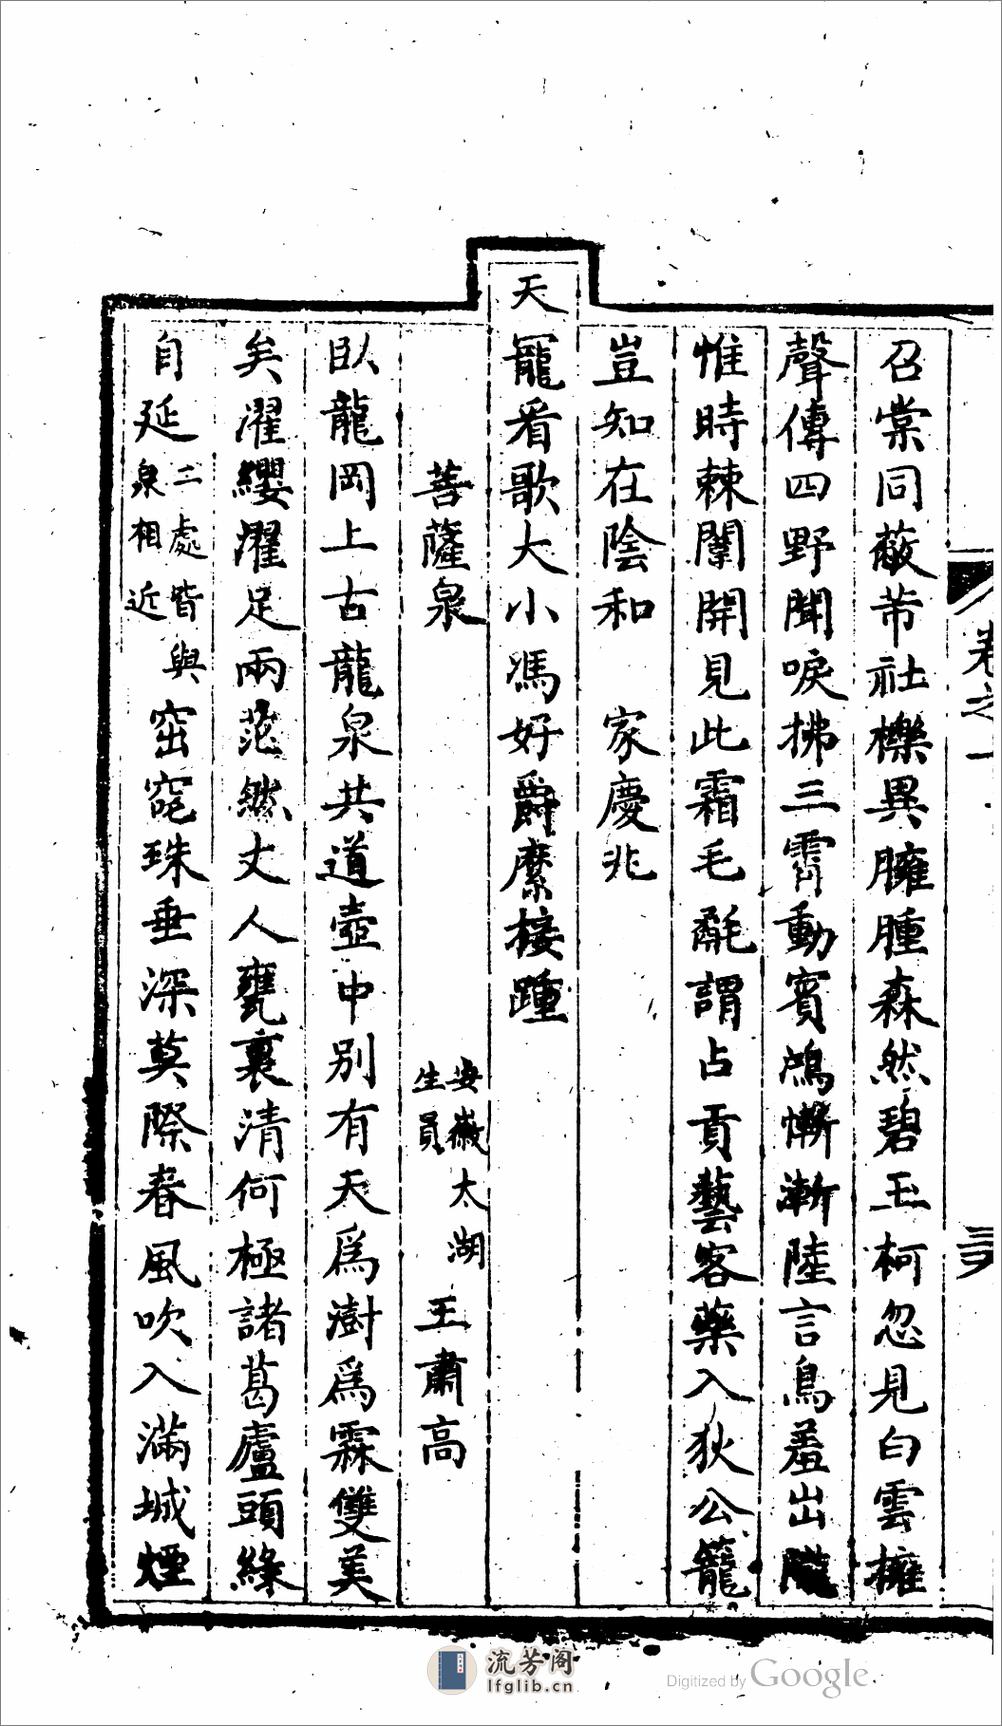 卷之一
三
召棠同蔽芾社櫟異臃腫森然碧玉柯忽見白雲擁
聲傳四野聞唳拂三霄動賓鴻慚漸陸言鳥羞出隴
惟時棘闈開見此霜毛氄謂占貢藝客藥入狄公籠
豈知在陰和 家慶兆
天寵看歌大小馮好爵縻接踵
菩薩泉 安徽太湖生員 王肅高
臥龍岡上古龍泉共道壺中別有天爲澍爲霖雙美
矣濯纓濯足兩茫然丈人甕裏清何極諸葛廬頭綠
自延二處皆與泉相近窋窀珠垂深莫際春風吹入滿城煙
流芳阁
lfglib.cn
Digitized by Google